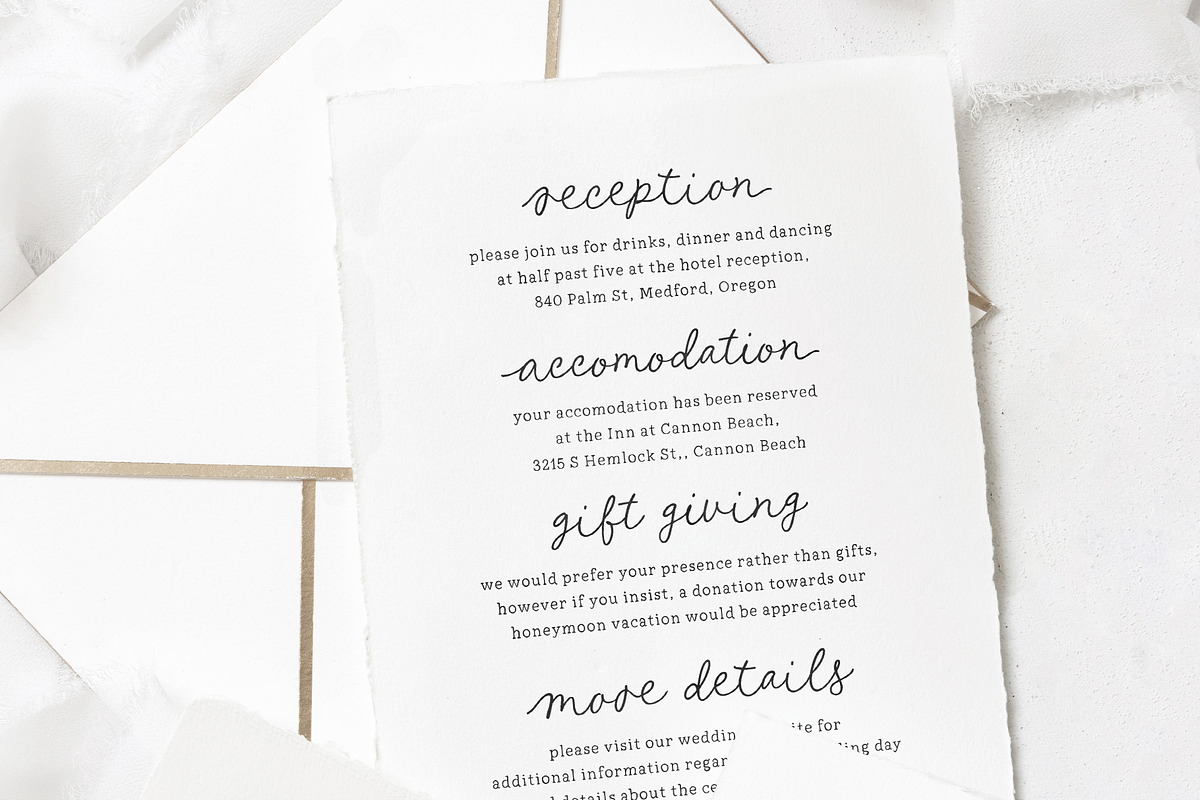 reception
please join us for drinks, dinner and dancing
at half past five at the hotel reception,
840 Palm St, Medford, Oregon
accomodation
your accomodation has been reserved
at the Inn at Cannon Beach,
3215 S Hemlock St,, Cannon Beach
gift giving
we would prefer your presence rather than gifts,
however if you insist, a donation towards our
honeymoon vacation would be appreciated
more details
please visit our for
additional information day
details about the